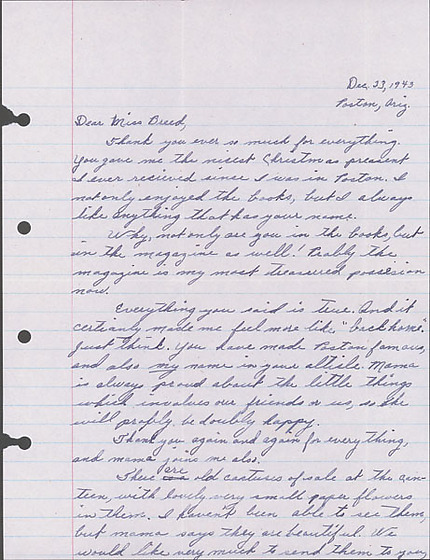 Dec. 23, 1943
Poston, Ariz.
Dear Miss Breed,
Thank you ever so much for everything.
You gave me the nicest Christmas present
I ever recieved since I was in Poston. I
not only enjoyed the books, but I always
like anything that has your name.
Why, not only are you in the books, but
in the magazine as well! Really the
magazine is my most treasured possesion
now.
Everything you said is true. And it
certianly made me feel more like "back home".
Just think. You have made Poston famous,
and also my name in your article. Mama
is always proud about the little things
which involves our friends or us, so she
will probly be doubly happy.
Thank you again and again for everything,
and mama joins me also.
There are old cactures of sale at the can-
teen, with lovely very small paper flowers
in them. I haven't been able to see them,
but mama says they are beautiful. We
would like very much to send them to you